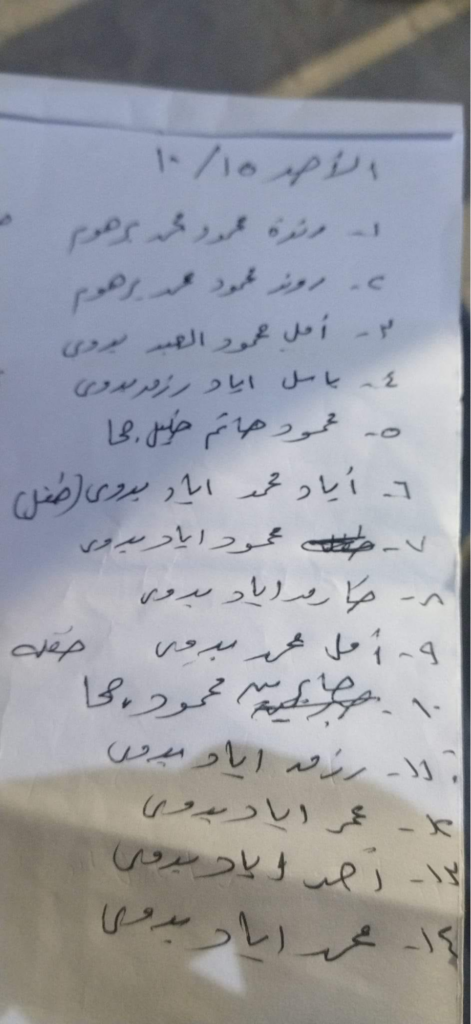 الأحد ١٥/١٠
١- رندة محمود محمد برهوم
٢- روند محمود محمد برهوم
٣- أمل محمود العبد بدوي
٤- باسل اياد رزق بدوي
٥- محمود حاتم خليل جحا
٦- أياد محمد اياد بدوي (طفل)
٧- محمود اياد بدوي
٨- اياد بدوي
٩- أمل محمد بدوي طفلة
١٠- محمود جحا
١١- رزق اياد بدوي
١٢- عمر اياد بدوي
١٣- أحمد اياد بدوي
١٤- محمد اياد بدوي